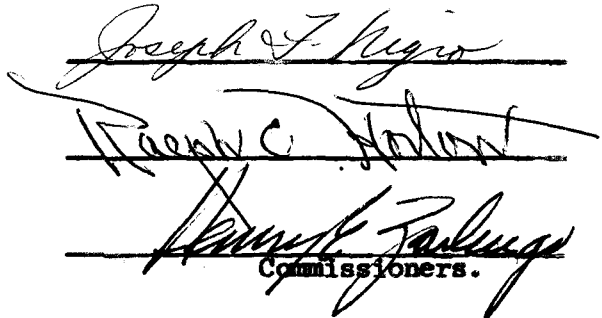 Joseph F. Nigro
Ralph C. Horton
Henry E. Zarlengo
Commissioners.